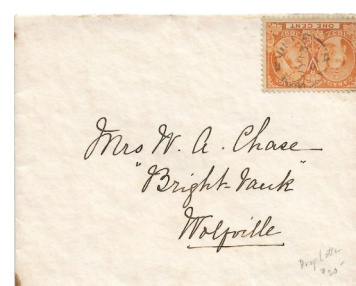 ONE CENT
Mrs W. A. Chase
"Bright-Bank"
Wolfville
Drop Letter
$20